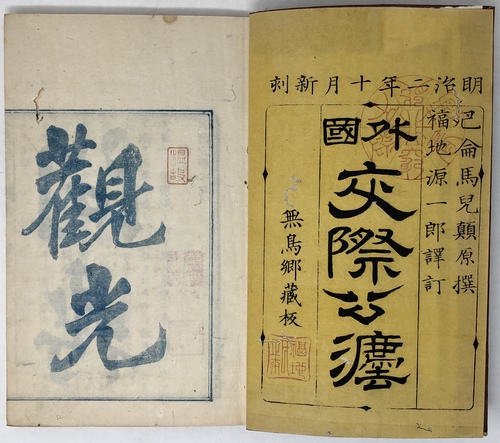 明治二年十月新刻
侖馬兒顛原撰
福地源一郎譯訂
外國
交際公灋
無鳥鄉藏板
觀光